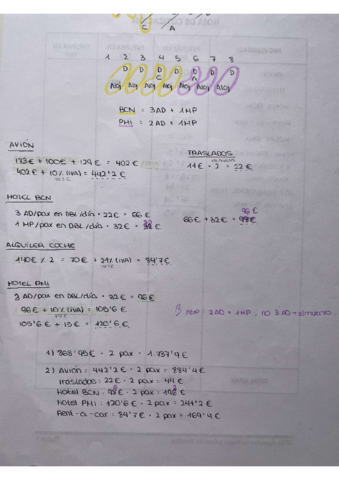 C A
1 2 3 4 5 6 7 8
D D D D D D D
C A
Aloj Aloj Aloj Aloj Aloj Aloj Aloj
BCN = 3AD + 1MP
PMI = 2AD + 1MP
AVIÓN
173€ + 100€ + 129€ = 402€
402€ + 10% (IVA) = 442'2€
TRASLADOS
11€ · 2 = 22€
HOTEL BCN
3 AD/pax en DBL/día · 22€ = 66€
1 MP/pax en DBL/día · 32€ = 32€
66€ + 32€ = 98€
ALQUILER COCHE
140€ / 2 = 70€ + 21% (IVA) = 84'7€
HOTEL PMI
3 AD/pax en DBL/día · 32€ = 96€
96€ + 10% (IVA) = 105'6
105'6€ + 15€ = 120'6€
pero 2AD + 1MP, no 3AD + almuerzo
1) 868'95€ · 2 pax = 1.737'9€
2) Avión: 442'2€ · 2 pax = 884'4€
Traslados: 22€ · 2 pax = 44€
Hotel BCN: 98€ · 2 pax = 196€
Hotel PMI: 120'6€ · 2 pax = 241'2€
Rent-a-car: 84'7€ · 2 pax = 169'4€